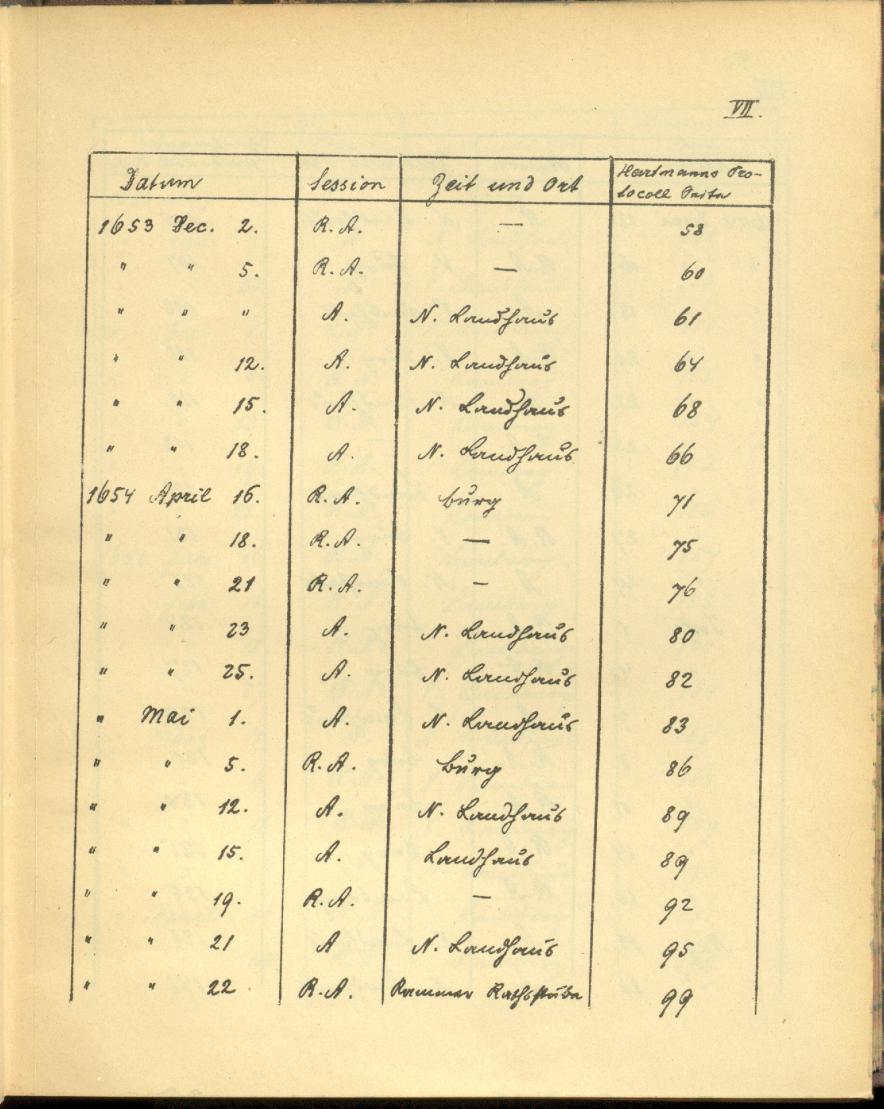 VII.
Datum Session Zeit und Ort Hartmanns Pro-
tocoll Seite
1653 Dec. 2. R.A. — 58
" " 5. R.A. — 60
" " " A. N. Landhaus 61
" " 12. A. N. Landhaus 64
" " 15. A. N. Landhaus 68
" " 18. A. N. Landhaus 66
1654 April 16. R.A. Burg 71
" " 18. R.A. — 75
" " 21 R.A. — 76
" " 23 A. N. Landhaus 80
" " 25. A. N. Landhaus 82
" Mai 1. A. N. Landhaus 83
" " 5. R.A. Burg 86
" " 12. A. N. Landhaus 89
" " 15. A. Landhaus 89
" " 19. R.A. — 92
" " 21 A N. Landhaus 95
" " 22 R.A. Kammer Rathsstube 99